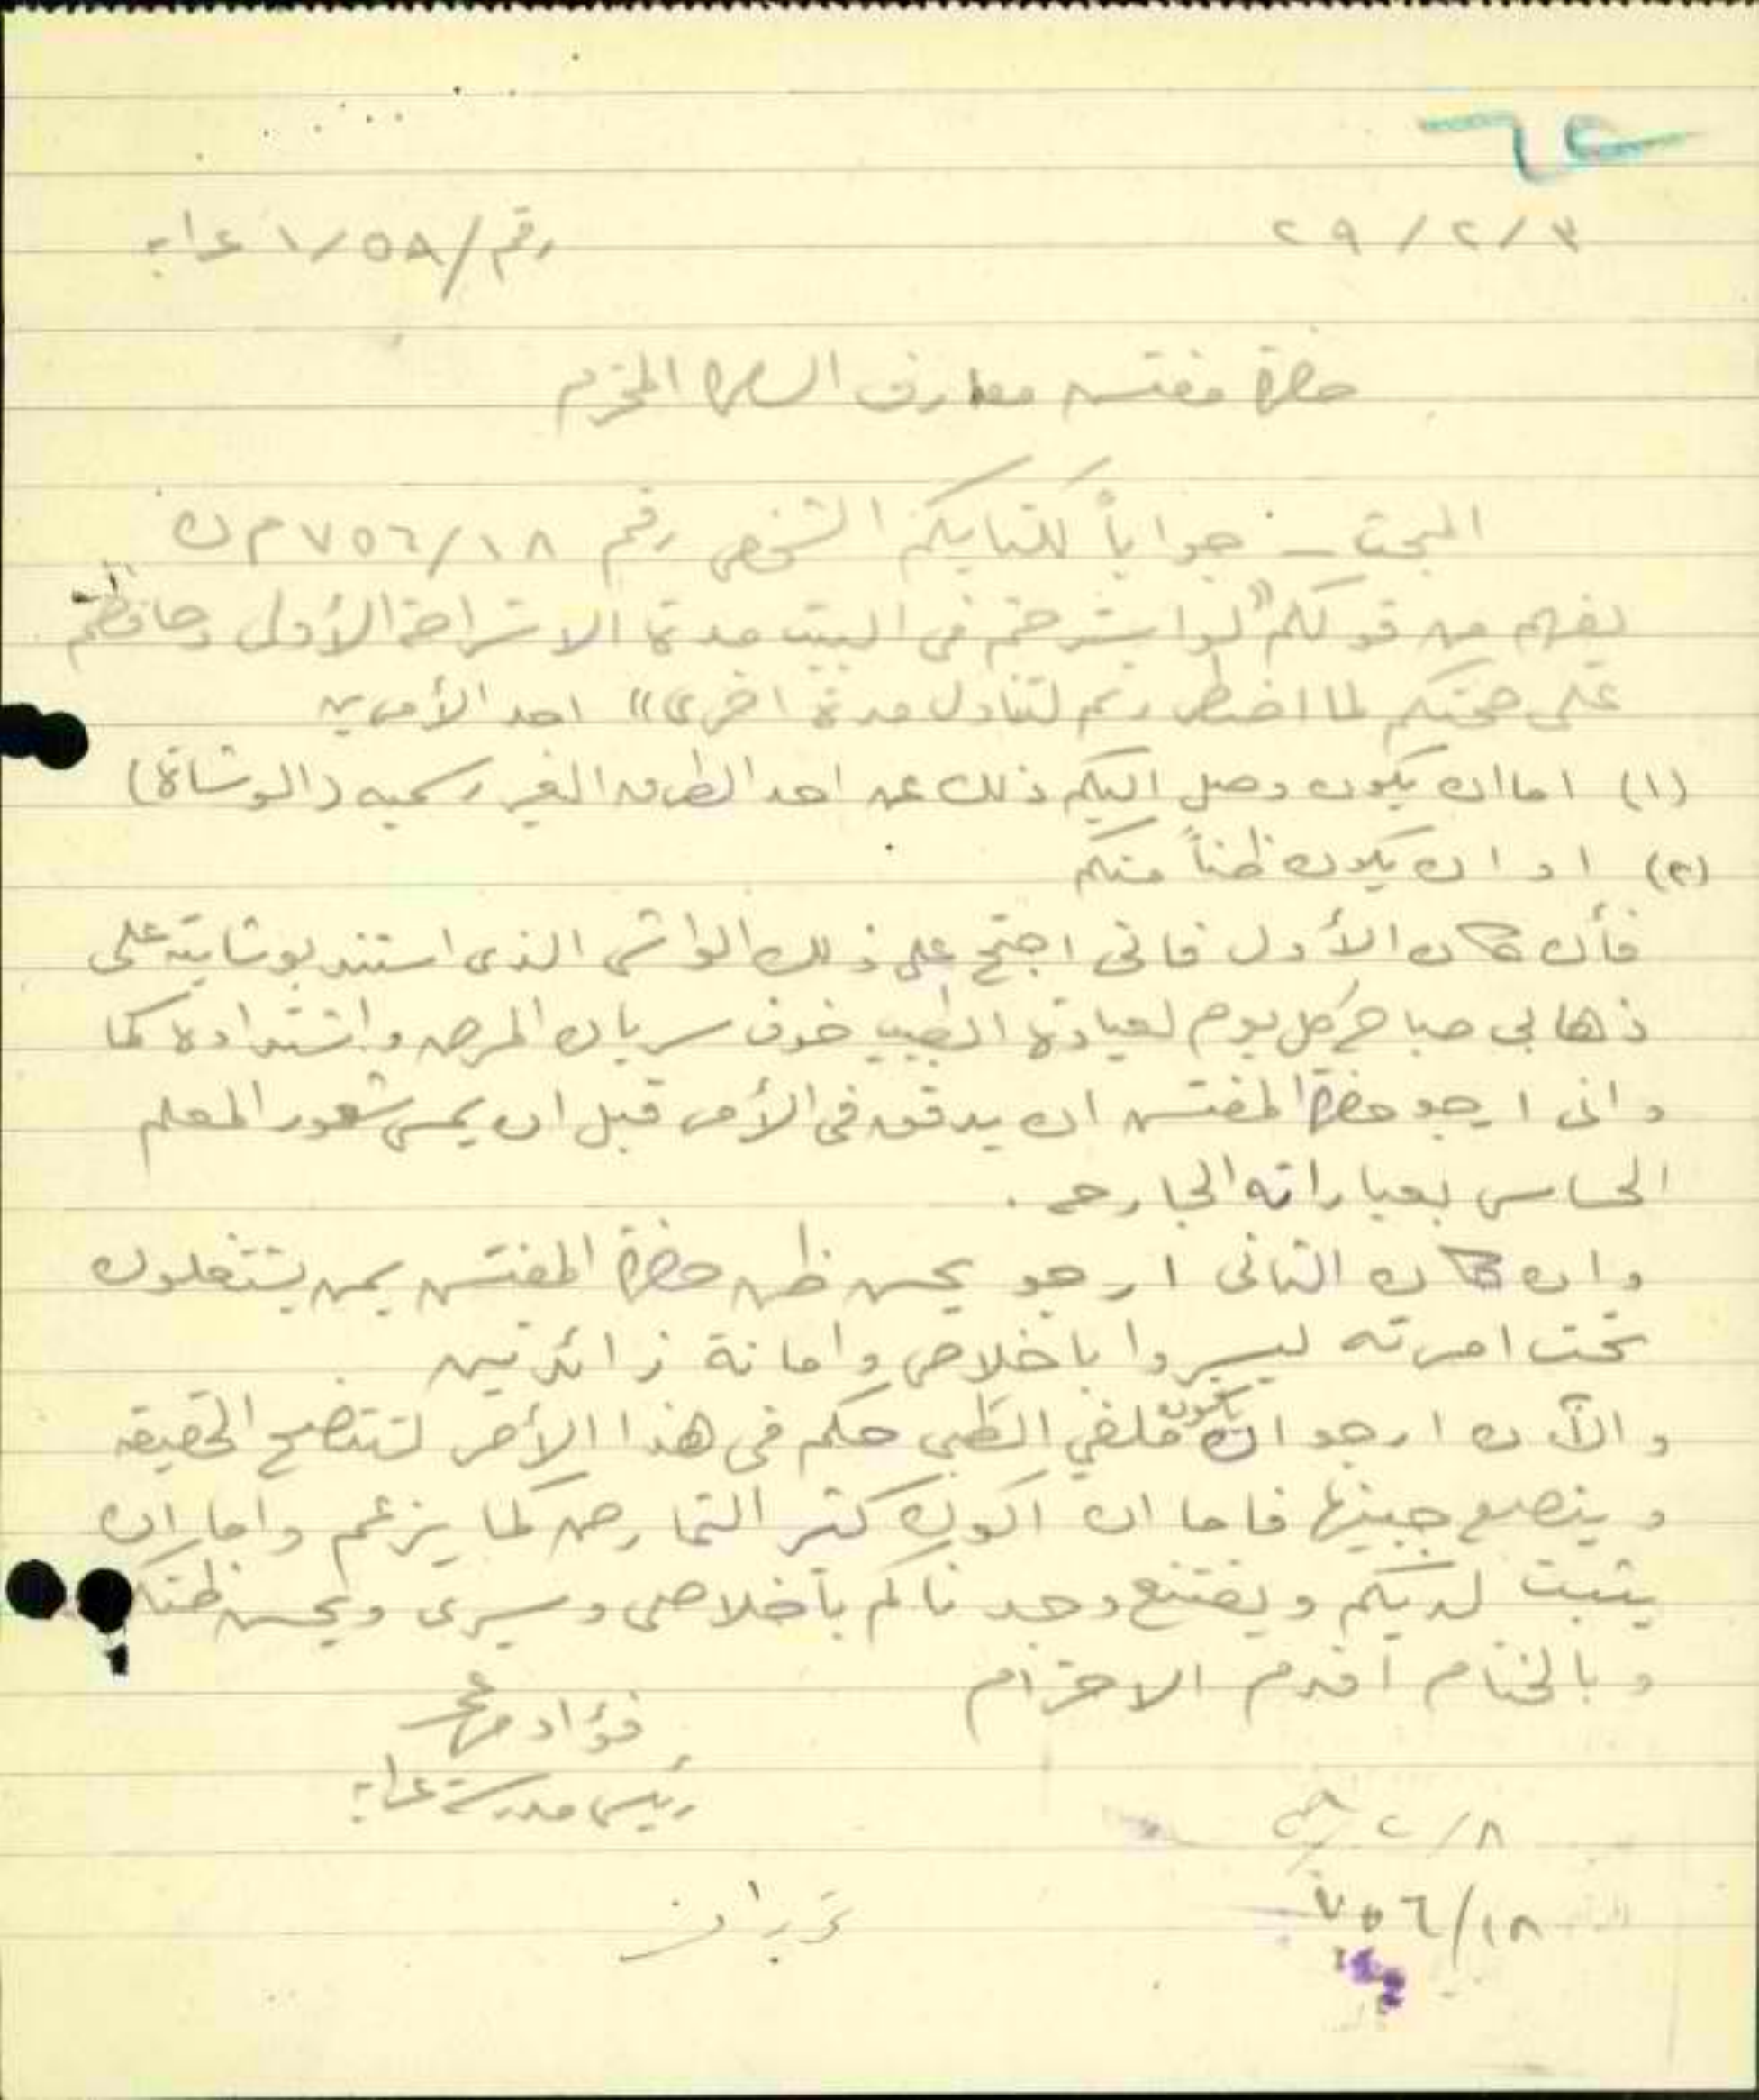 ٦٢
٢٩/٢/٣
رقم/٥٨/١ عرابه
حضرة مفتش معارف السامرة المحترم
المبحث - جواباً لكتابكم الشخصي رقم ٧٥٦/١٨ م ن
يفهم من قولكم "لو استرحتم في البيت مدة الاستراحة الأولى وحافظتم
على صحتكم لما اضطررتم لتناول مدة اخرى" احد الأمرين
(١) اما ان يكون وصل اليكم ذلك عن احد الطرق الغير رسميه (الوشاة)
(٢) او ان يكون ظناً منكم
فأن كان الأول فاني احتج على ذلك الواشي الذي استند بوشايته على
ذهابي صباح كل يوم لعيادة الطبيب خوف سريان المرض واشتداده كما
واني ارجو حضرة المفتش ان يدقق في الأمر قبل ان يمس شعور المعلم
الحساس بعباراته الجارحه .
وان كان الثاني ارجو يحسن ظن حضرة المفتش بمن يشتغلون
تحت امرته ليسيروا باخلاص وامانة زائدتين
والآن ارجو ان يكون ملفي الطبي حكم في هذا الأمر لتتضح الحقيقة
وينصع جبينها فاما ان اكون كثير التمارض كما يزعم واما ان
يثبت لديكم ويقتنع وجدناكم بأخلاصي وسيري ويحسن ظنكم
وبالختام اقدم الاحترام
فؤاد
رئيس مدرسة عرابه
٢/٨
٧٥٦/١٨